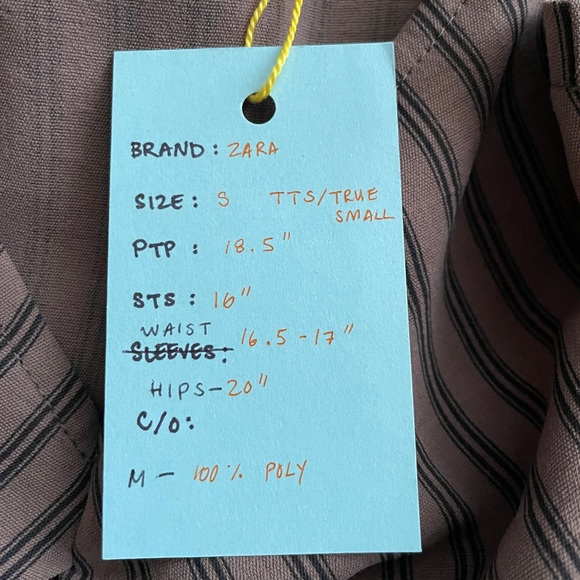 BRAND: ZARA
SIZE: S TTS/TRUE
SMALL
PTP: 18.5"
STS: 16"
WAIST
SLEEVES: 16.5-17"
HIPS-20"
C/O:
M- 100% POLY